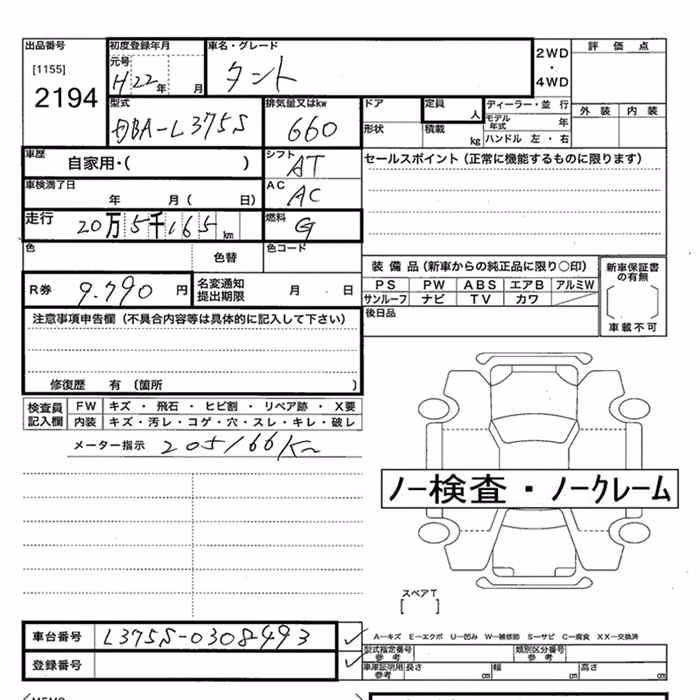 出品番号 初度登録年月 車名・グレード 2WD・4WD 評価点
[1155] 元号 H22年 月 タント
2194 外装 内装
型式 DBA-L375S 排気量又はkw 660 ドア 定員 人 ディーラー・並行
形状 積載 kg モデル年式 年
ハンドル 左・右
車歴 自家用・( ) シフト AT セールスポイント(正常に機能するものに限ります)
車検満了日 年 月( 日) AC AC
走行 20万5千165km 燃料 G
色 色替 色コード
装備品(新車からの純正品に限り〇印) 新車保証書の有無
R券 9.790円 名変通知提出期限 月 日 PS PW ABS エアB アルミW
サンルーフ ナビ TV カワ
後日品 車載不可
注意事項申告欄(不具合内容等は具体的に記入して下さい)
修復歴 有〔箇所 〕
検査員記入欄 FW キズ・飛石・ヒビ割・リペア跡・X要
内装 キズ・汚レ・コゲ・穴・スレ・キレ・破レ
メーター指示 205166Km
ノー検査・ノークレーム
スペアT
[ ]
車台番号 L375S-0308493 A−キズ E−エクボ U−凹み W−補修跡 S−サビ C−腐食 XX−交換済
登録番号 型式指定番号 参考 類別区分番号 参考
車庫証明用参考 長さ cm 幅 cm 高さ cm
MEMO